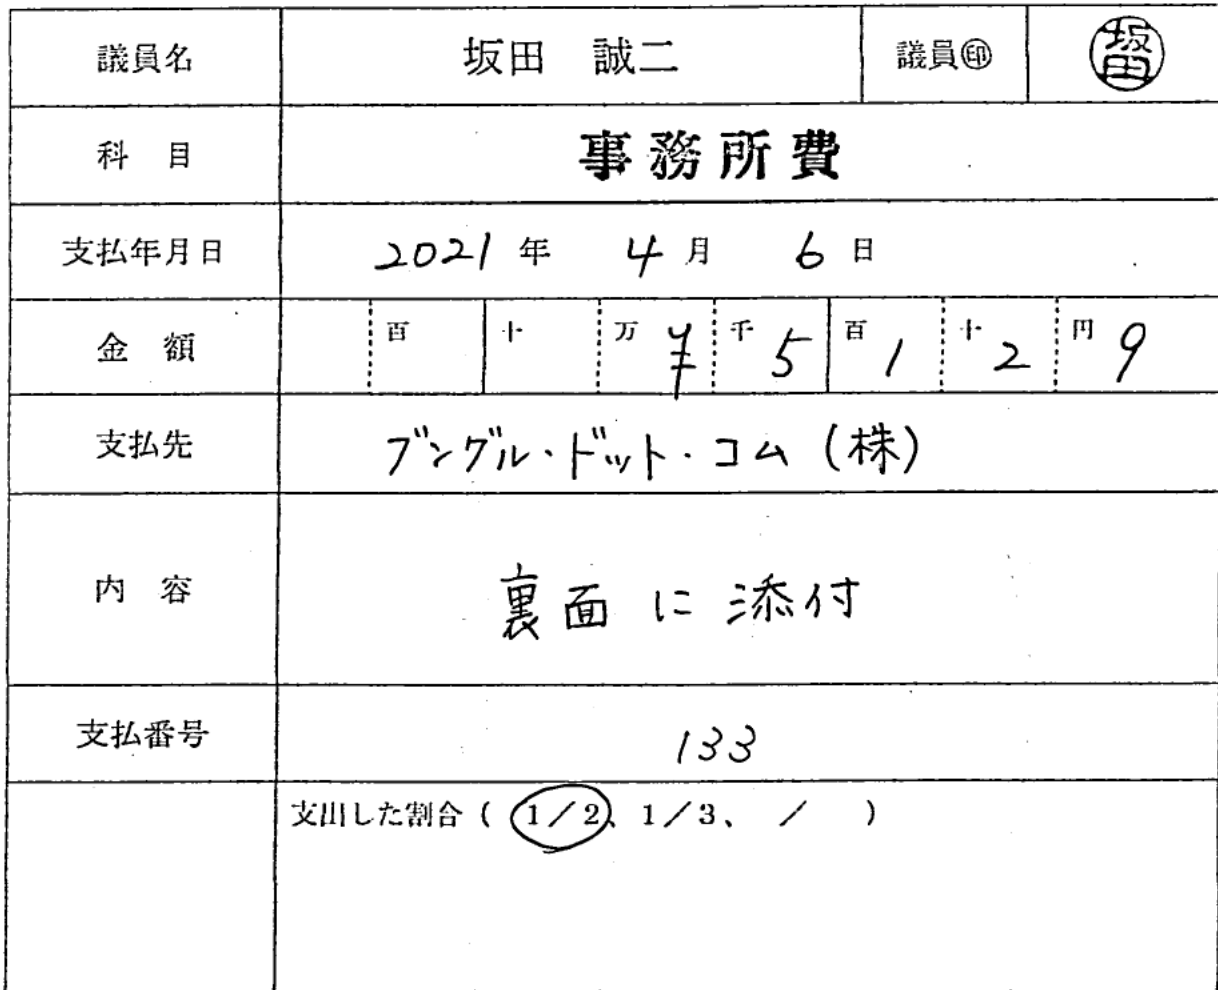 議員名 坂田 誠二 議員㊞ 坂田
科目 事務所費
支払年月日 2021年 4月 6日
金額 百 十 万 ¥ 千 5 百 1 十 2 円 9
支払先 ブングル・ドット・コム (株)
内容 裏面に添付
支払番号 133
支出した割合 ( 1/2、1/3、 / )